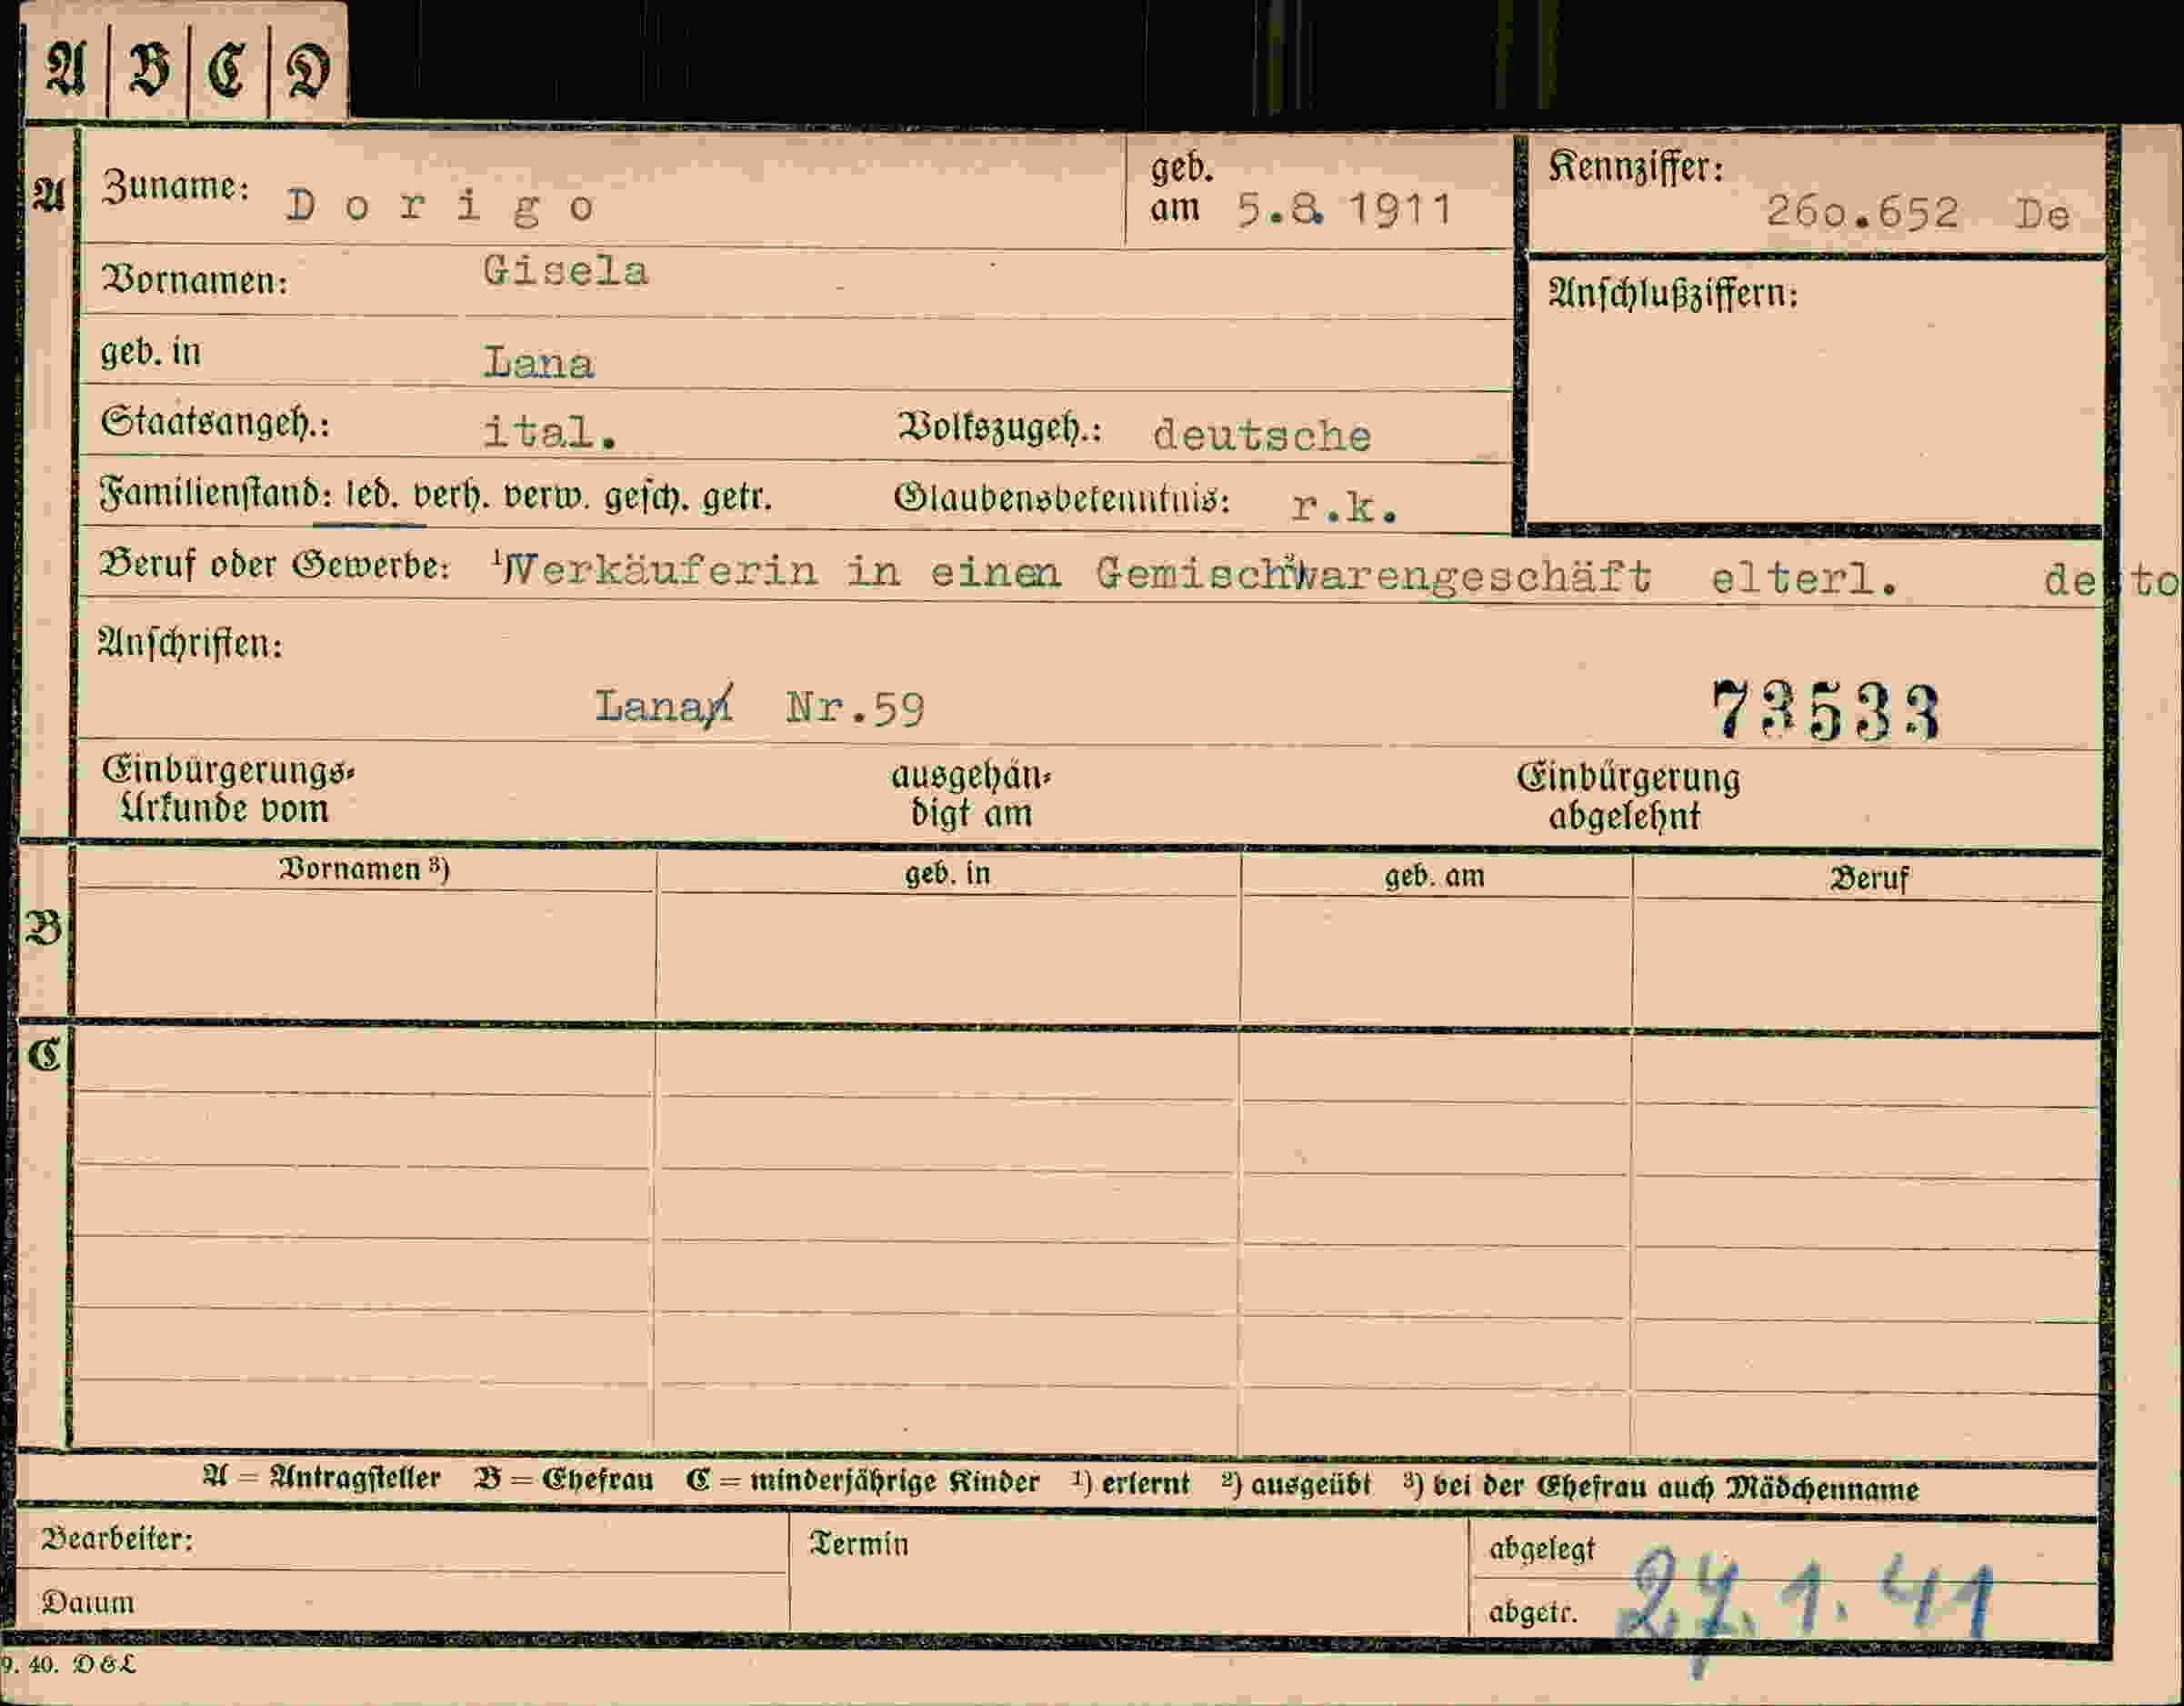 A B C D
A Zuname: Dorigo geb. am 5.8. 1911 Kennziffer: 26o.652 De
Vornamen: Gisela
Anschlußziffern:
geb. in Lana
Staatsangeh.: ital. Volkszugeh.: deutsche
Familienstand: led. verh. verw. gesch. getr. Glaubensbekenntnis: r.k.
Beruf oder Gewerbe: ¹) Verkäuferin in einen Gemischwarengeschäft elterl. de to
Anschriften:
Lana Nr.59 73533
Einbürgerungs-
Urkunde vom
ausgehän-
digt am
Einbürgerung
abgelehnt
Vornamen ³) geb. in geb. am Beruf
B
C
A = Antragsteller B = Ehefrau C = minderjährige Kinder ¹) erlernt ²) ausgeübt ³) bei der Ehefrau auch Mädchenname
Bearbeiter: Termin abgelegt 27.1.41
Datum abgetr.
9. 40. D&L